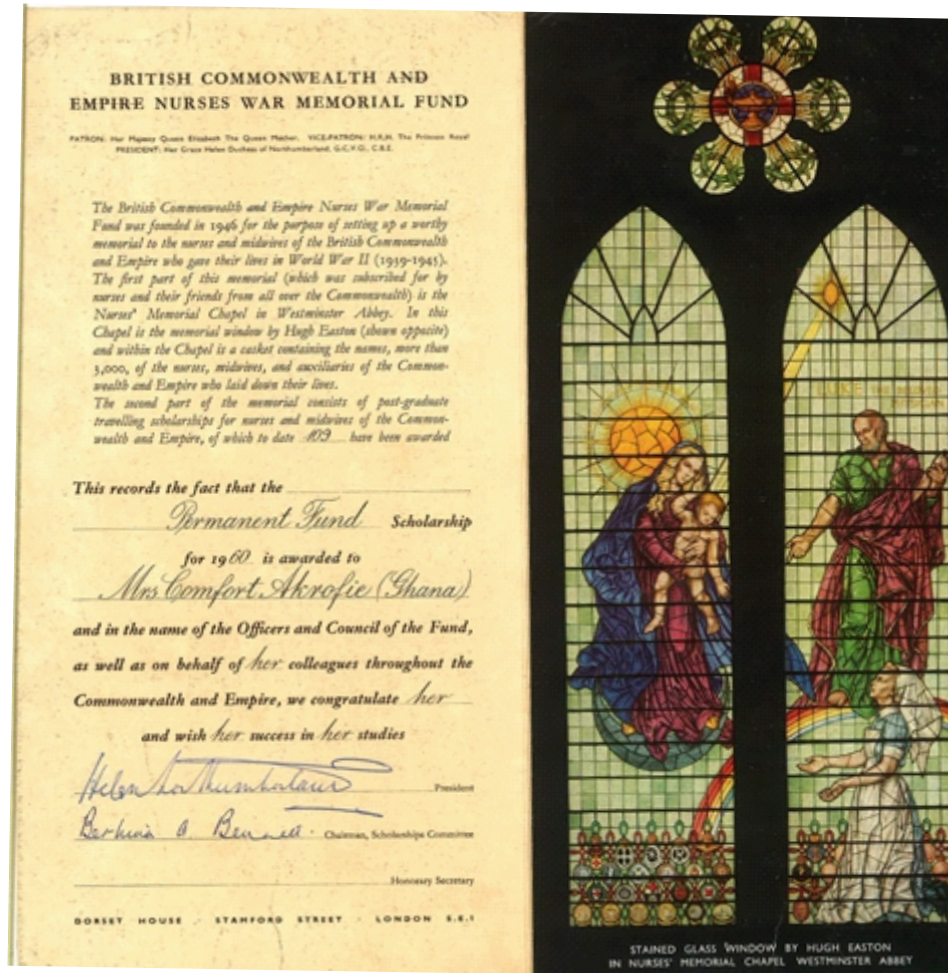 BRITISH COMMONWEALTH AND
EMPIRE NURSES WAR MEMORIAL FUND
PATRON: Her Majesty Queen Elizabeth The Queen Mother. VICE-PATRON: H.R.H. The Princess Royal
PRESIDENT: Her Grace Helen Duchess of Northumberland, G.C.V.O., C.B.E.
The British Commonwealth and Empire Nurses War Memorial
Fund was founded in 1946 for the purpose of setting up a worthy
memorial to the nurses and midwives of the British Commonwealth
and Empire who gave their lives in World War II (1939-1945).
The first part of this memorial (which was subscribed for by
nurses and their friends from all over the Commonwealth) is the
Nurses' Memorial Chapel in Westminster Abbey. In this
Chapel is the memorial window by Hugh Easton (shown opposite)
and within the Chapel is a casket containing the names, more than
3,000, of the nurses, midwives, and auxiliaries of the Common-
wealth and Empire who laid down their lives.
The second part of the memorial consists of post-graduate
travelling scholarships for nurses and midwives of the Common-
wealth and Empire, of which to date 109 have been awarded
This records the fact that the
Permanent Fund Scholarship
for 1960 is awarded to
Mrs Comfort Akrofie (Ghana)
and in the name of the Officers and Council of the Fund,
as well as on behalf of her colleagues throughout the
Commonwealth and Empire, we congratulate her
and wish her success in her studies
Helen Northumberland President
Bennett Chairman, Scholarships Committee
Honorary Secretary
DORSET HOUSE · STAMFORD STREET · LONDON S.E.1
LUKE
STAINED GLASS WINDOW BY HUGH EASTON
IN NURSES' MEMORIAL CHAPEL WESTMINSTER ABBEY